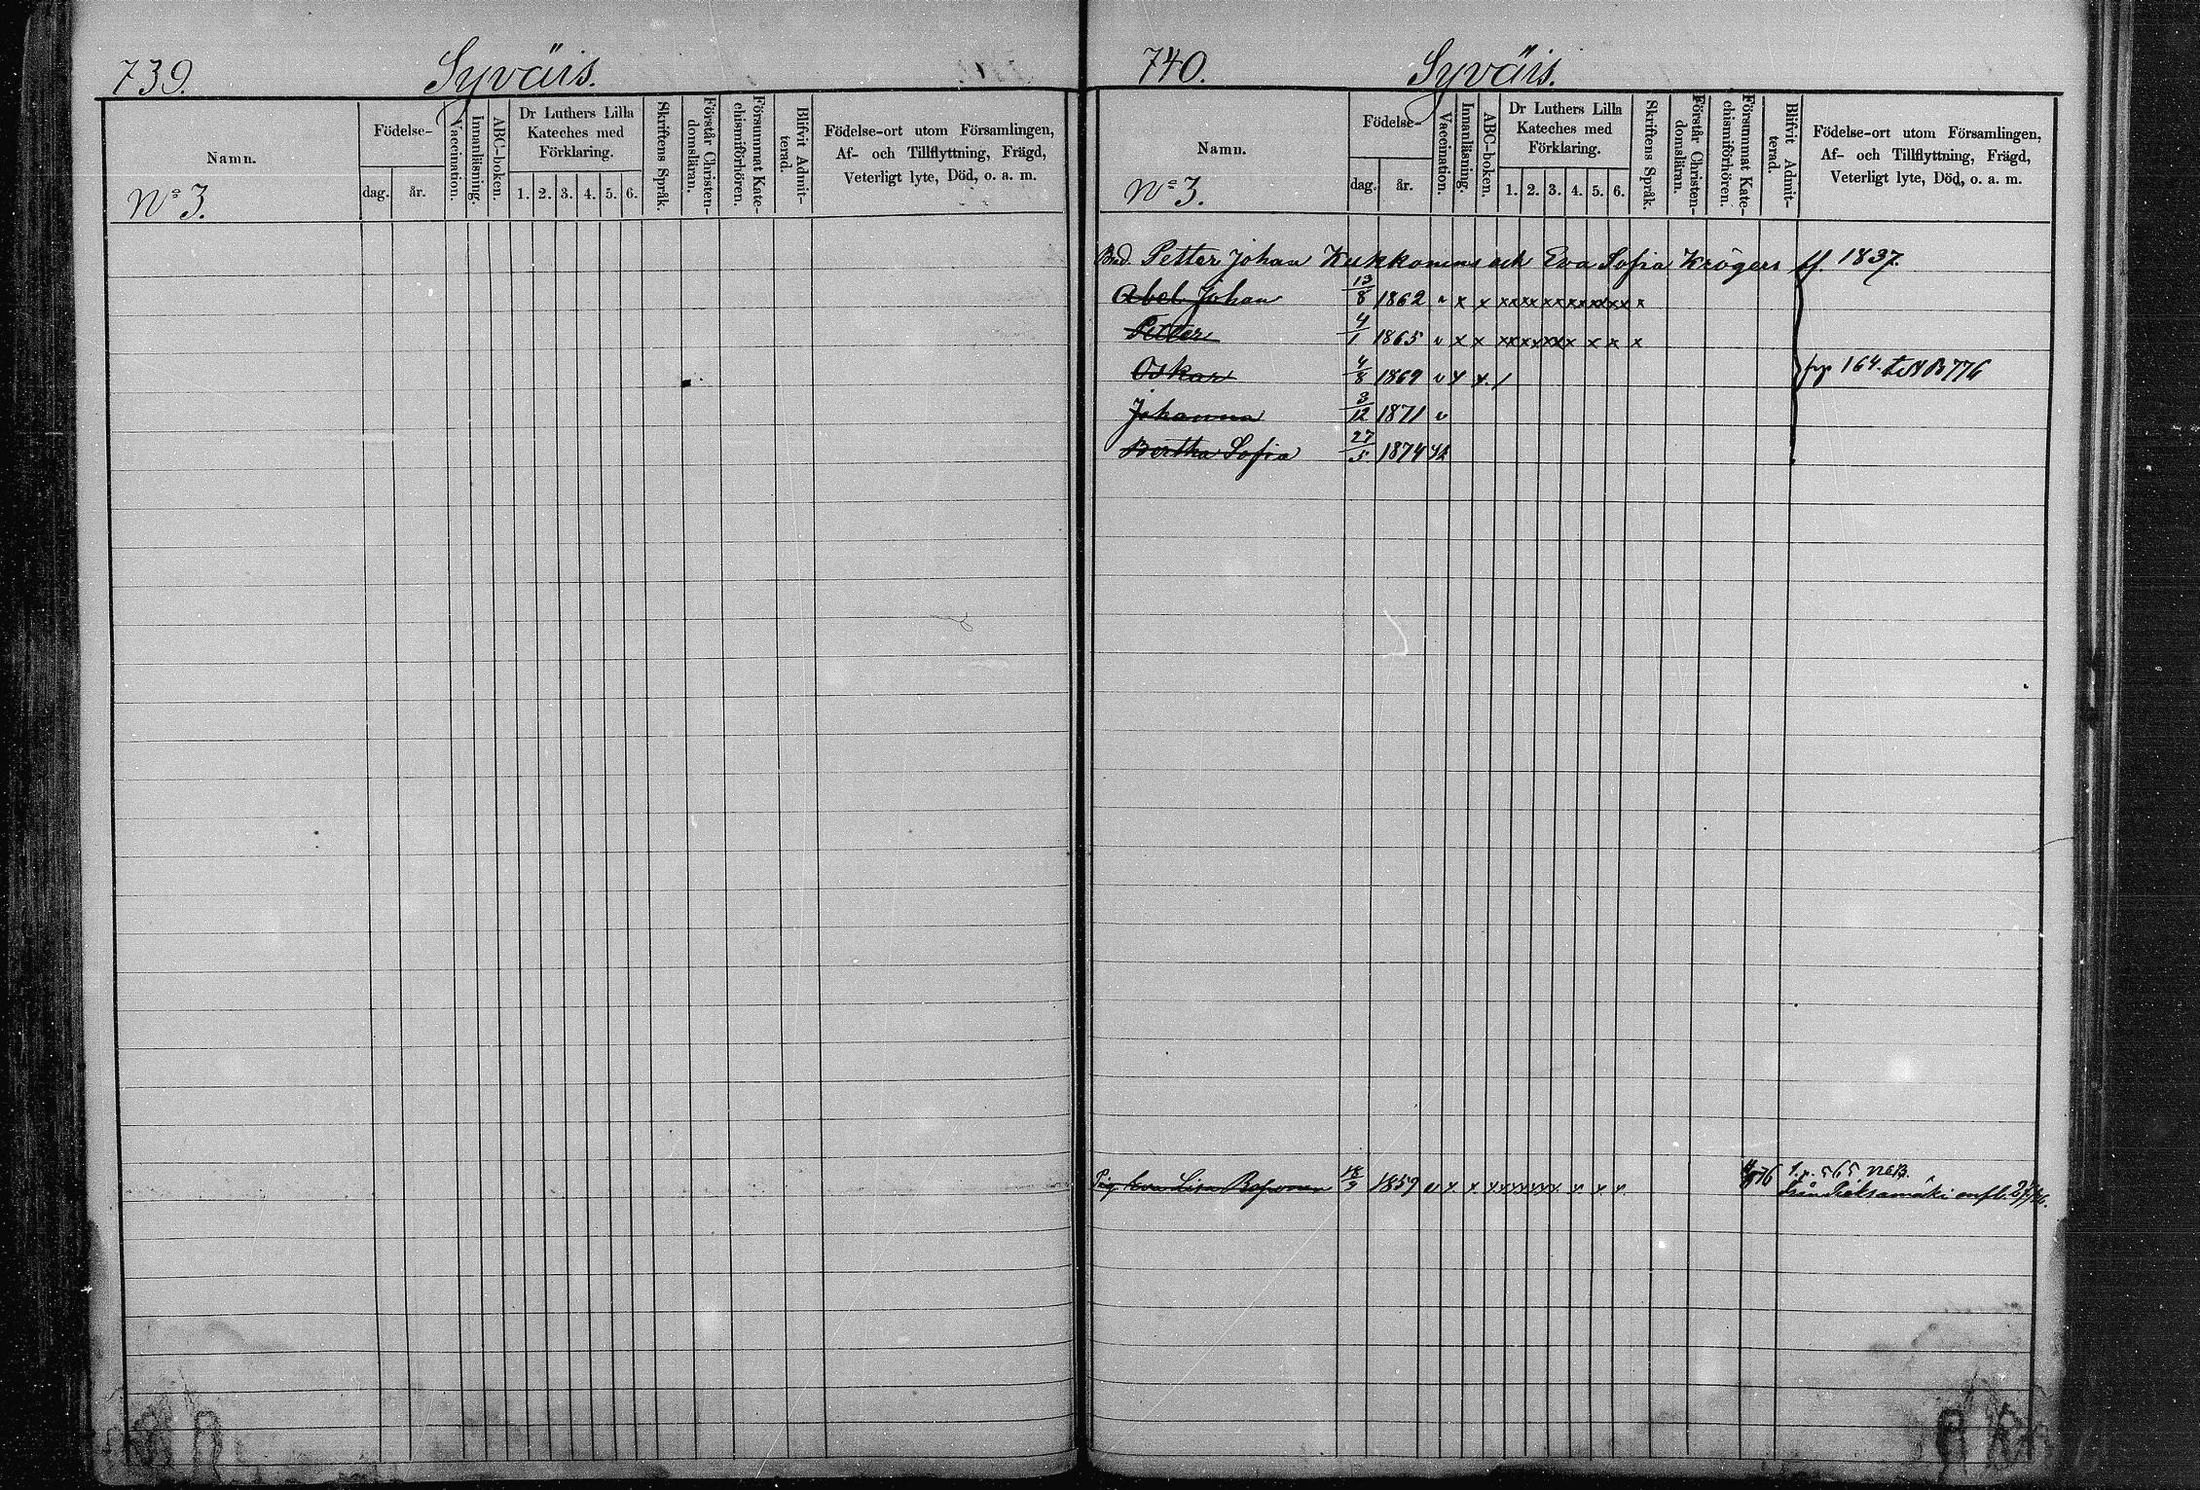 739.
Syväis.
Namn.
Nº 3.
Födelse-
dag.
år.
Vaccination.
Innanläsning.
ABC-boken.
Dr Luthers Lilla
Kateches med
Förklaring.
1. 2. 3. 4. 5. 6.
Skriftens Språk.
Förstår Christen-
domsläran.
Försummat Kate-
chismiförhören.
Blifvit Admit-
terad.
Födelse-ort utom Församlingen,
Af- och Tillflyttning, Frägd,
Veterligt lyte, Död, o. a. m.
740.
Syväis.
Namn.
Nº 3.
Födelse-
dag.
år.
Vaccination.
Innanläsning.
ABC-boken.
Dr Luthers Lilla
Kateches med
Förklaring.
1. 2. 3. 4. 5. 6.
Skriftens Språk.
Förstår Christen-
domsläran.
Försummat Kate-
chismiförhören.
Blifvit Admit-
terad.
Födelse-ort utom Församlingen,
Af- och Tillflyttning, Frägd,
Veterligt lyte, Död, o. a. m.
Petter Johan Kukkonens och Eva Sofia Krögers 1837.
Abel Johan 13/8 1862 v x x xx xx xx xx xx xx x
Petter 4/1 1865 v x x xx xx xx x x x x
Oskar 4/8 1869 v x x /
164. B 776
Johanna 3/12 1871 v
Bertha Sofia 27/5 1874
Eva Lisa 18/9 1859 v x x x xx xx xx v v v
565
Från Pieksämäki